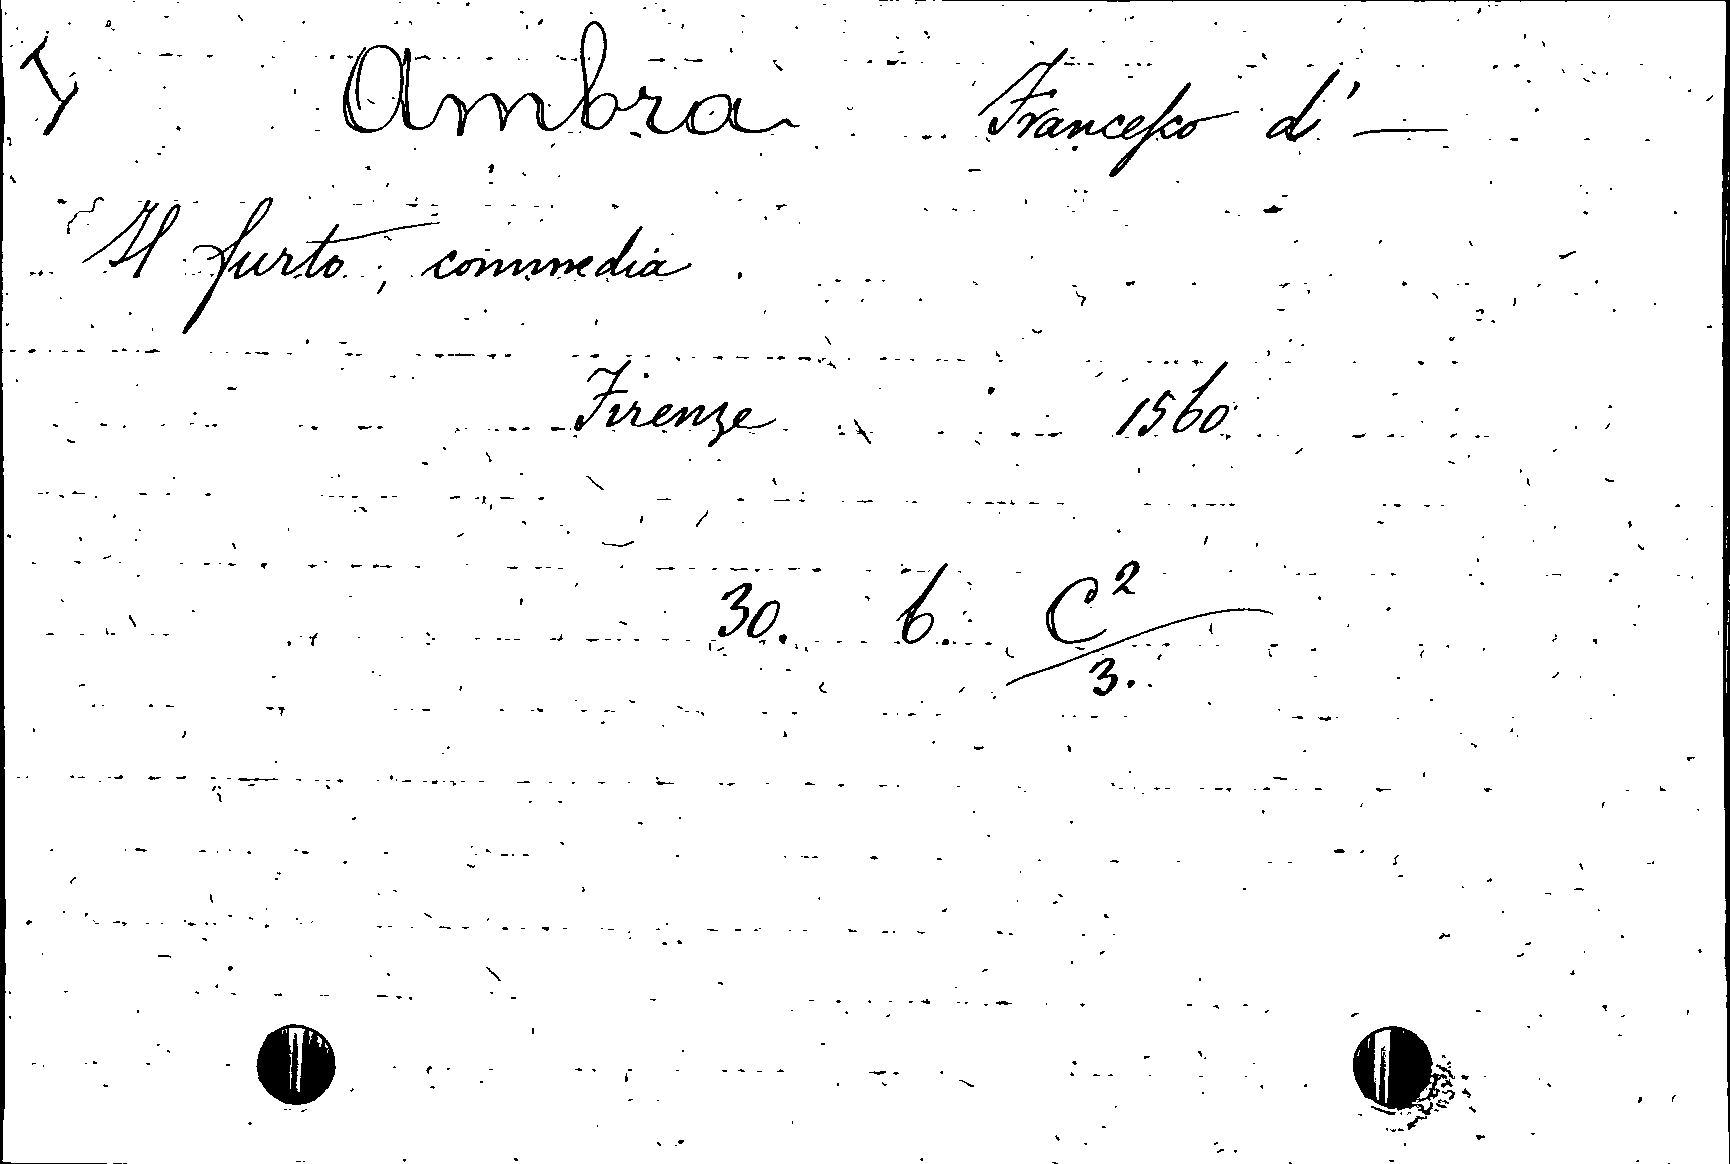 Ambra Francesco d' —
Il furto, commedia
Firenze 1560
30. 6. C²
3.